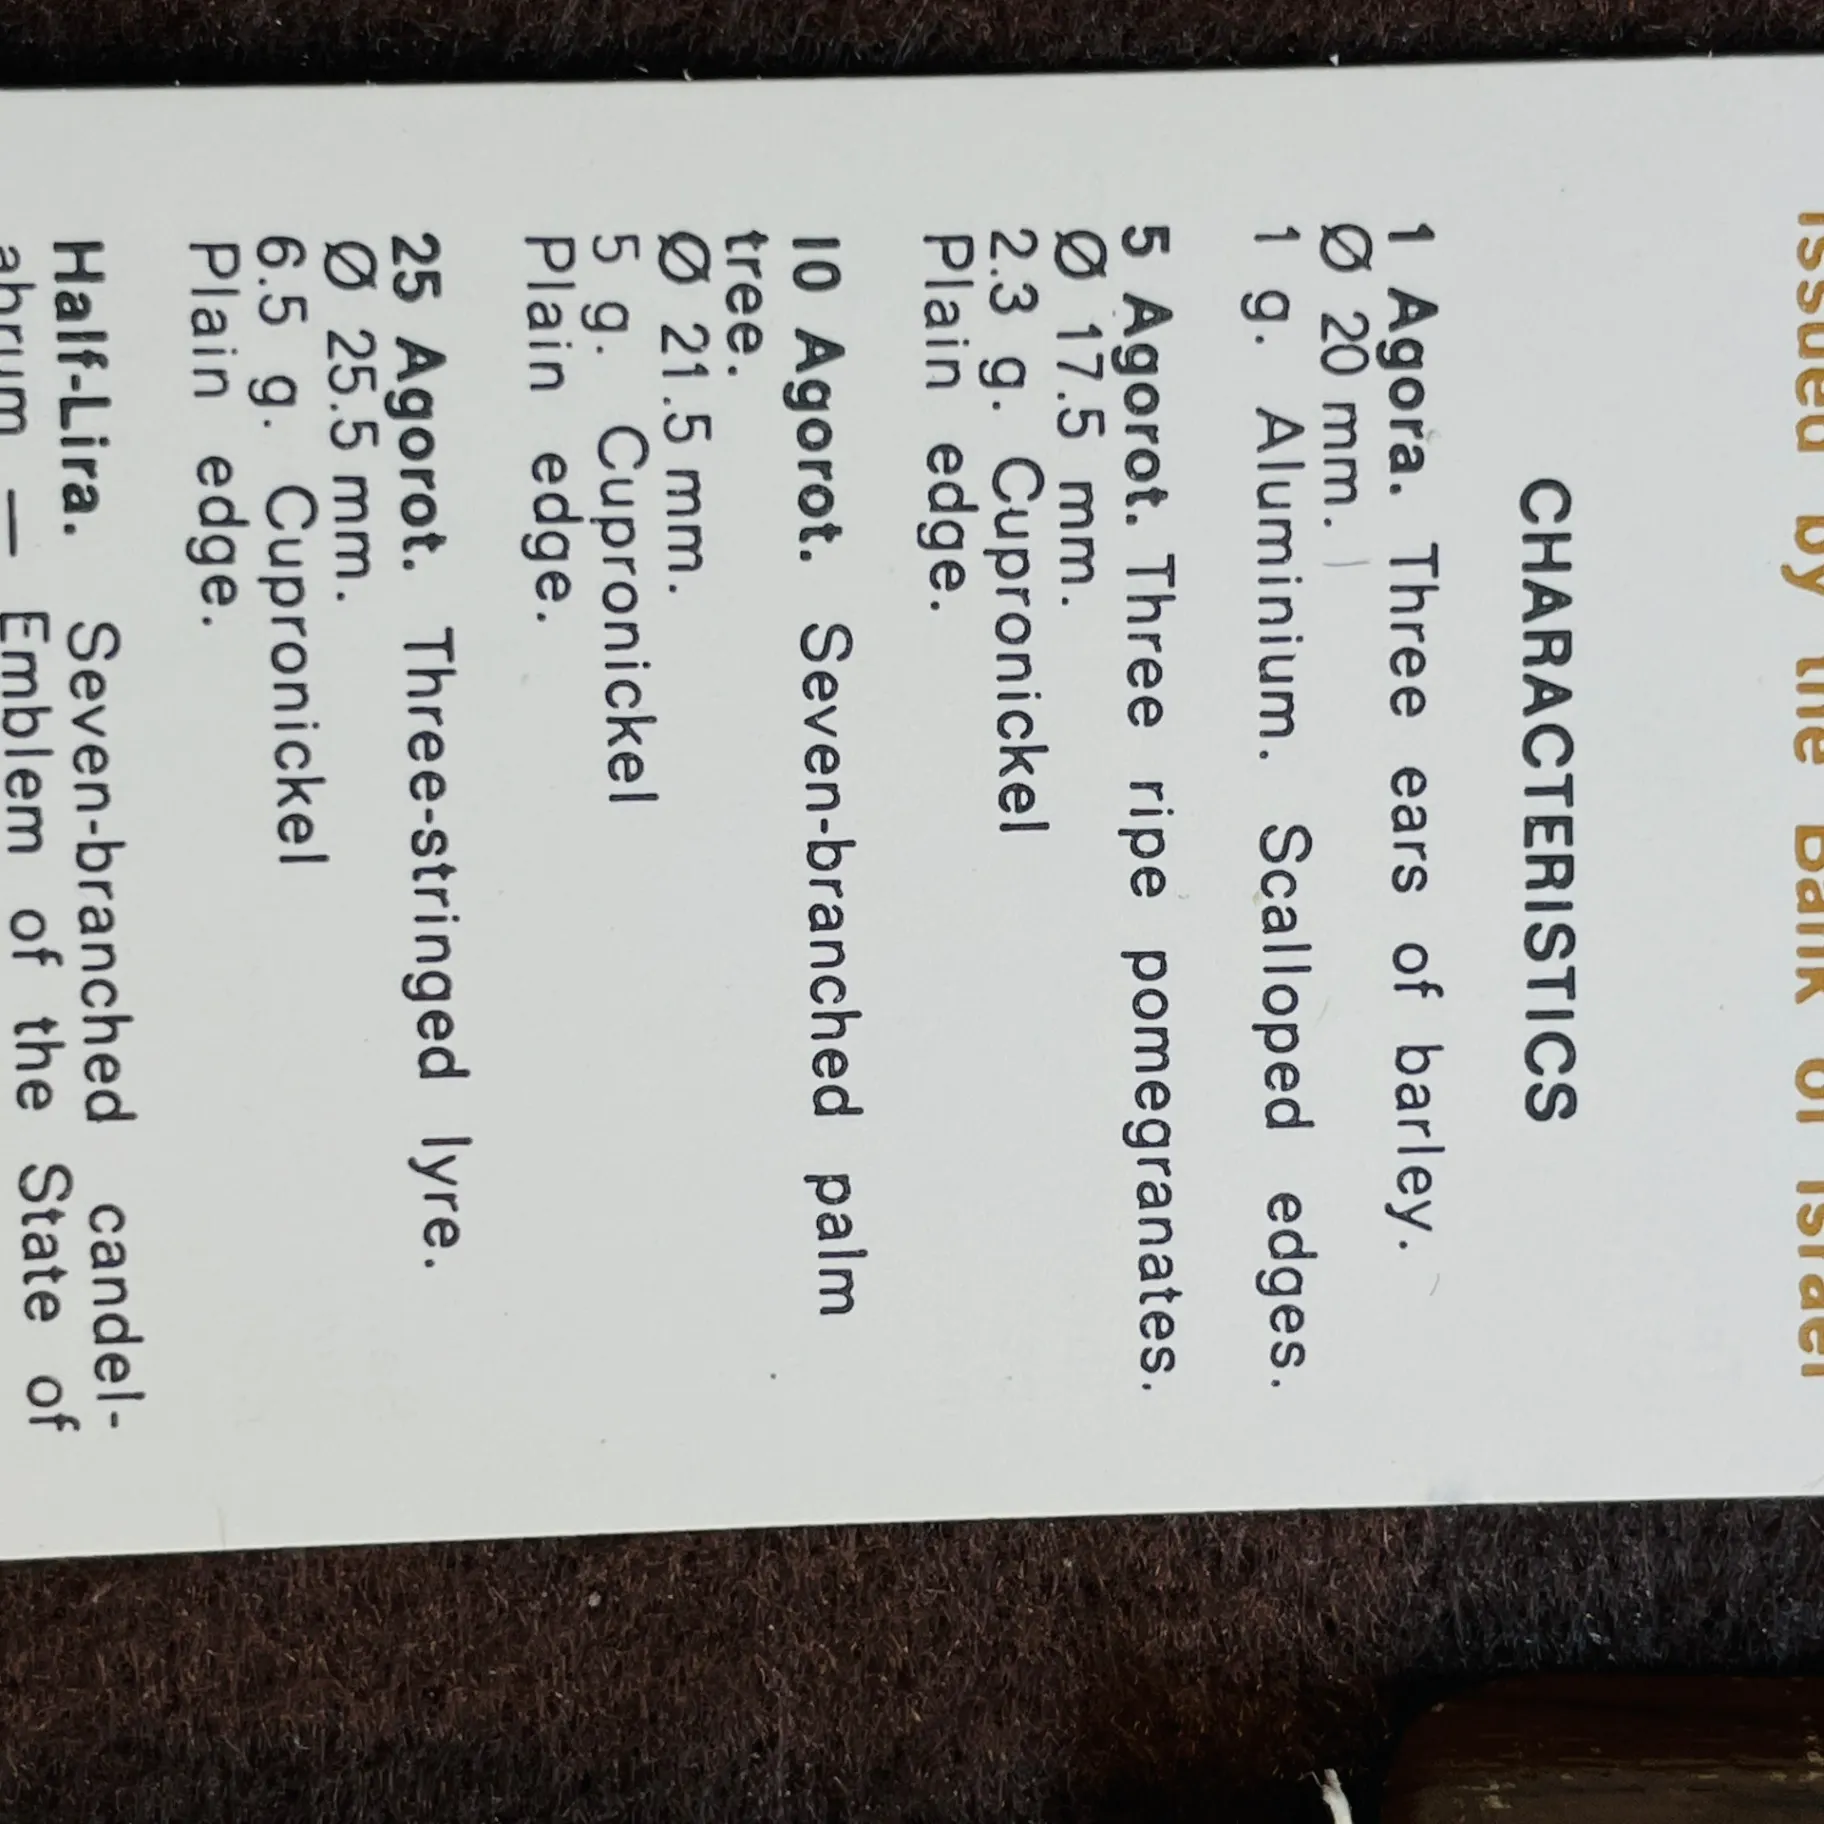 issued by the Bank of Israel
CHARACTERISTICS
1 Agora. Three ears of barley.
Ø 20 mm.
1 g. Aluminium. Scalloped edges.
5 Agorot. Three ripe pomegranates.
Ø 17.5 mm.
2.3 g. Cupronickel
Plain edge.
10 Agorot. Seven-branched palm
tree.
Ø 21.5 mm.
5 g. Cupronickel
Plain edge.
25 Agorot. Three-stringed lyre.
Ø 25.5 mm.
6.5 g. Cupronickel
Plain edge.
Half-Lira. Seven-branched candel-
abrum — Emblem of the State of